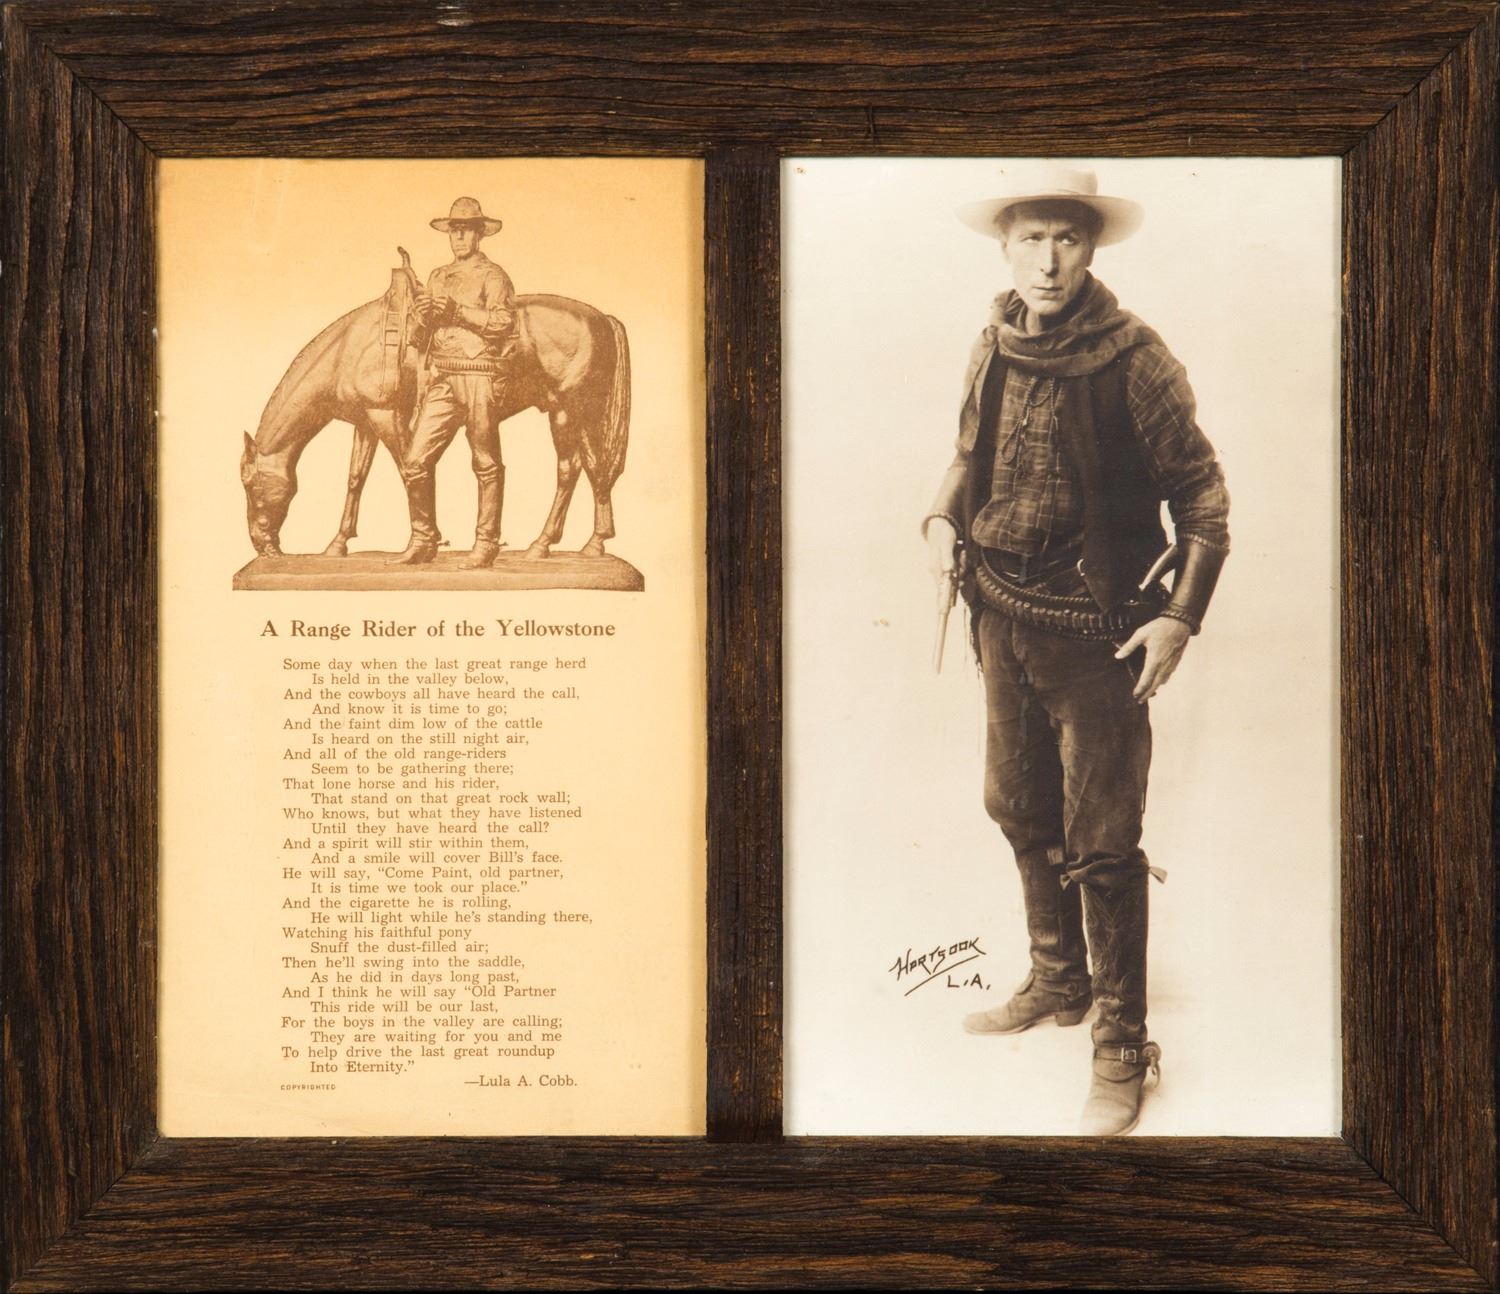 A Range Rider of the Yellowstone
Some day when the last great range herd
Is held in the valley below,
And the cowboys all have heard the call,
And know it is time to go;
And the faint dim low of the cattle
Is heard on the still night air,
And all of the old range-riders
Seem to be gathering there;
That lone horse and his rider,
That stand on that great rock wall;
Who knows, but what they have listened
Until they have heard the call?
And a spirit will stir within them,
And a smile will cover Bill's face.
He will say, "Come Paint, old partner,
It is time we took our place."
And the cigarette he is rolling,
He will light while he's standing there,
Watching his faithful pony
Snuff the dust-filled air;
Then he'll swing into the saddle,
As he did in days long past,
And I think he will say "Old Partner
This ride will be our last,
For the boys in the valley are calling;
They are waiting for you and me
To help drive the last great roundup
Into Eternity."
—Lula A. Cobb.
COPYRIGHTED
HARTSOOK
L.A.